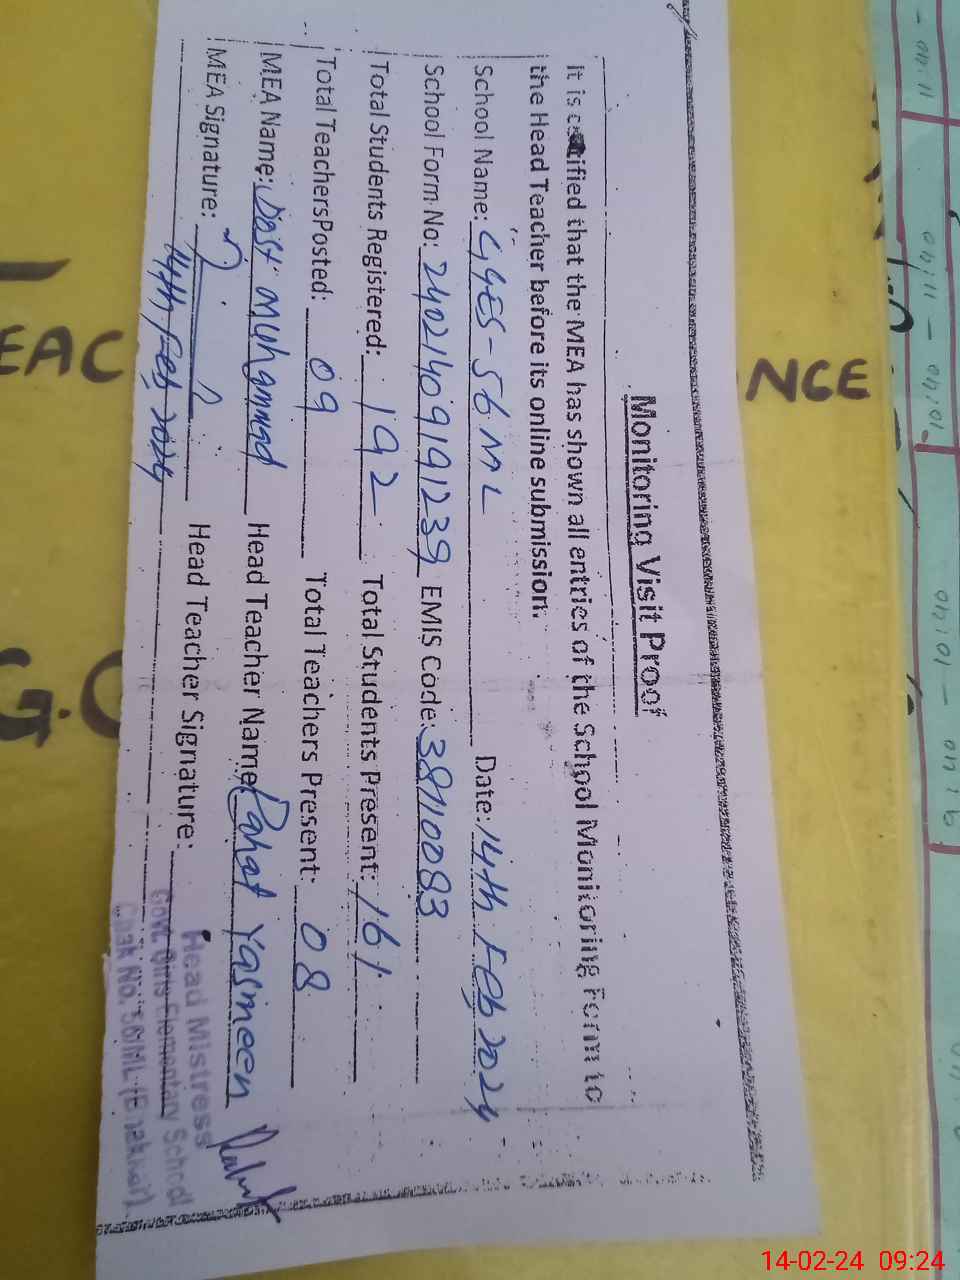 Monitoring Visit Proof
it is certified that the MEA has shown all entries of the School Monitoring Form to
the Head Teacher before its online submission.
School Name: GGES-56 ML Date: 14th Feb 2024
School Form No: 24021409191239 EMIS Code: 38110083
Total Students Registered: 192 Total Students Present: 161
Total TeachersPosted: 09 Total Teachers Present: 08
MEA Name: Dost Muhammad Head Teacher Name: Rahat Yasmeen
MEA Signature: Head Teacher Signature:
14th Feb 2024
Head Mistress
Govt. Girls Elementary School
Chak No. 56/ML (Bhakkar)
EAC
NCE
G.C
14-02-24 09:24